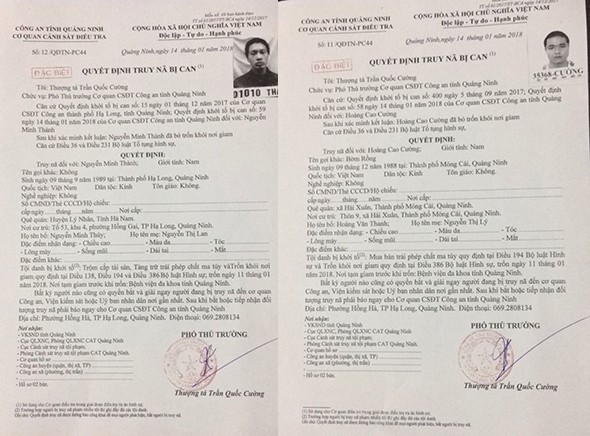 Mẫu số: 10 ban hành theo
TT số 61/2017/TT-BCA ngày 14/12/2017
CÔNG AN TỈNH QUẢNG NINH
CỘNG HÒA XÃ HỘI CHỦ NGHĨA VIỆT NAM
CƠ QUAN CẢNH SÁT ĐIỀU TRA
Độc lập - Tự do - Hạnh phúc
Số: 12 /QĐTN-PC44
Quảng Ninh, ngày 14 tháng 01 năm 2018
ĐẶC BIỆT
QUYẾT ĐỊNH TRUY NÃ BỊ CAN (1)
Tôi: Thượng tá Trần Quốc Cường
01010 THÀ
Chức vụ: Phó Thủ trưởng Cơ quan CSĐT Công an tỉnh Quảng Ninh
Căn cứ Quyết định khởi tố bị can số: 15 ngày 01 tháng 12 năm 2017 của Cơ quan
CSĐT Công an thành phố Hạ Long, tỉnh Quảng Ninh; Quyết định khởi tố bị can số: 59
ngày 14 tháng 01 năm 2018 của Cơ quan CSĐT Công an tỉnh Quảng Ninh đối với: Nguyễn
Minh Thành
Sau khi xác minh kết luận: Nguyễn Minh Thành đã bỏ trốn khỏi nơi giam
Căn cứ Điều 36 và Điều 231 Bộ luật Tố tụng hình sự,
QUYẾT ĐỊNH:
Truy nã đối với: Nguyễn Minh Thành; Giới tính: Nam
Tên gọi khác: Không
Sinh ngày 09 tháng 9 năm 1989 tại: Thành phố Hạ Long, Quảng Ninh
Quốc tịch: Việt Nam Dân tộc: Kinh Tôn giáo: Không.
Nghề nghiệp: Không
Số CMND/Thẻ CCCD/Hộ chiếu:
cấp ngày tháng năm Nơi cấp:
Quê quán: Huyện Lý Nhân, Tỉnh Hà Nam.
Nơi cư trú: Tổ 53, khu 4, phường Hồng Gai, TP Hạ Long, Quảng Ninh.
Họ tên bố: Nguyễn Minh Thủy; Họ tên mẹ: Nguyễn Thị Lan
Đặc điểm nhận dạng: - Chiều cao - Màu da - Tóc
- Lông mày - Sống mũi - Dái tai - Mắt
Đặc điểm khác:
Tội danh bị khởi tố(2): Trộm cắp tài sản, Tàng trữ trái phép chất ma túy và Trốn khỏi nơi
giam quy định tại Điều 138, Điều 194 và Điều 386 Bộ luật Hình sự; trốn ngày 11 tháng 01
năm 2018. Nơi tạm giam trước khi trốn: Bệnh viện đa khoa tỉnh Quảng Ninh.
Bất kỳ người nào cũng có quyền bắt và giải ngay người đang bị truy nã đến cơ quan
Công an, Viện kiểm sát hoặc Uỷ ban nhân dân nơi gần nhất. Sau khi bắt hoặc tiếp nhận đối
tượng truy nã phải báo ngay cho Cơ quan CSĐT Công an tỉnh Quảng Ninh
Địa chỉ: Phường Hồng Hà, TP Hạ Long, Quảng Ninh. Điện thoại: 069.2808134
Nơi nhận:
- VKSND tỉnh Quảng Ninh
- Cục QLXNC, Phòng QLXNC CAT Quảng Ninh.
- Cục Cảnh sát truy nã tội phạm,
- Phòng Cảnh sát truy nã tội phạm CAT Quảng Ninh.
- Cơ quan hồ sơ
- Công an huyện (quận, thị xã, TP)
- Công an xã (phường, thị trấn)
- Hồ sơ 02 bản.
PHÓ THỦ TRƯỞNG
Thượng tá Trần Quốc Cường
(1) Sử dụng cho Cơ quan điều tra trong giai đoạn điều tra vụ án hình sự;
(2) Trường hợp người bị truy nã phạm nhiều tội thì ghi đầy đủ các tội danh.
TT số 61/2017/TT-BCA ngày 14/12/2017
CÔNG AN TỈNH QUẢNG NINH
CỘNG HÒA XÃ HỘI CHỦ NGHĨA VIỆT NAM
CƠ QUAN CẢNH SÁT ĐIỀU TRA
Độc lập - Tự do - Hạnh phúc
Số: 11 /QĐTN-PC44
Quảng Ninh, ngày 14 tháng 01 năm 2018
ĐẶC BIỆT
QUYẾT ĐỊNH TRUY NÃ BỊ CAN (1)
35368-CƯỜNG
Tôi: Thượng tá Trần Quốc Cường
Chức vụ: Phó Thủ trưởng Cơ quan CSĐT Công an tỉnh Quảng Ninh
Căn cứ Quyết định khởi tố bị can số: 400 ngày 5 tháng 09 năm 2017; Quyết định
khởi tố bị can số: 58 ngày 14 tháng 01 năm 2018 của Cơ quan CSĐT Công an tỉnh Quảng
Ninh đối với: Hoàng Cao Cường
Sau khi xác minh kết luận: Hoàng Cao Cường đã bỏ trốn khỏi nơi giam
Căn cứ Điều 36 và Điều 231 Bộ luật Tố tụng hình sự,
QUYẾT ĐỊNH:
Truy nã đối với: Hoàng Cao Cường; Giới tính: Nam
Tên gọi khác: Bờm Rồng
Sinh ngày 09 tháng 12 năm 1988 tại: Thành phố Móng Cái, Quảng Ninh
Quốc tịch: Việt Nam Dân tộc: Kinh Tôn giáo: Không.
Nghề nghiệp: Không
Số CMND/Thẻ CCCD/Hộ chiếu:
cấp ngày tháng năm Nơi cấp:
Quê quán: xã Hải Xuân, Thành phố Móng Cái, Quảng Ninh.
Nơi cư trú: Thôn 9, xã Hải Xuân, Thành phố Móng Cái, Quảng Ninh.
Họ tên bố: Hoàng Văn Thanh; Họ tên mẹ: Nguyễn Thị Lý
Đặc điểm nhận dạng: - Chiều cao - Màu da - Tóc
- Lông mày - Sống mũi - Dái tai - Mắt
Đặc điểm khác:
Tội danh bị khởi tố(2): Mua bán trái phép chất ma túy quy định tại Điều 194 Bộ luật Hình
sự và Trốn khỏi nơi giam quy định tại Điều 386 Bộ luật Hình sự, trốn ngày 11 tháng 01
năm 2018. Nơi tạm giam trước khi trốn: Bệnh viện đa khoa tỉnh Quảng Ninh.
Bất kỳ người nào cũng có quyền bắt và giải ngay người đang bị truy nã đến cơ quan
Công an, Viện kiểm sát hoặc Uỷ ban nhân dân nơi gần nhất. Sau khi bắt hoặc tiếp nhận đối
tượng truy nã phải báo ngay cho Cơ quan CSĐT Công an tỉnh Quảng Ninh
Địa chỉ: Phường Hồng Hà, TP Hạ Long, Quảng Ninh. Điện thoại: 069.2808134
Nơi nhận:
- VKSND tỉnh Quảng Ninh
- Cục QLXNC, Phòng QLXNC CAT Quảng Ninh.
- Cục Cảnh sát truy nã tội phạm,
- Phòng Cảnh sát truy nã tội phạm CAT Quảng Ninh.
- Cơ quan hồ sơ
- Công an huyện (quận, thị xã, TP)
- Công an xã (phường, thị trấn)
- Hồ sơ 02 bản.
PHÓ THỦ TRƯỞNG
Thượng tá Trần Quốc Cường
(1) Sử dụng cho Cơ quan điều tra trong giai đoạn điều tra vụ án hình sự;
(2) Trường hợp người bị truy nã phạm nhiều tội thì ghi đầy đủ các tội danh.